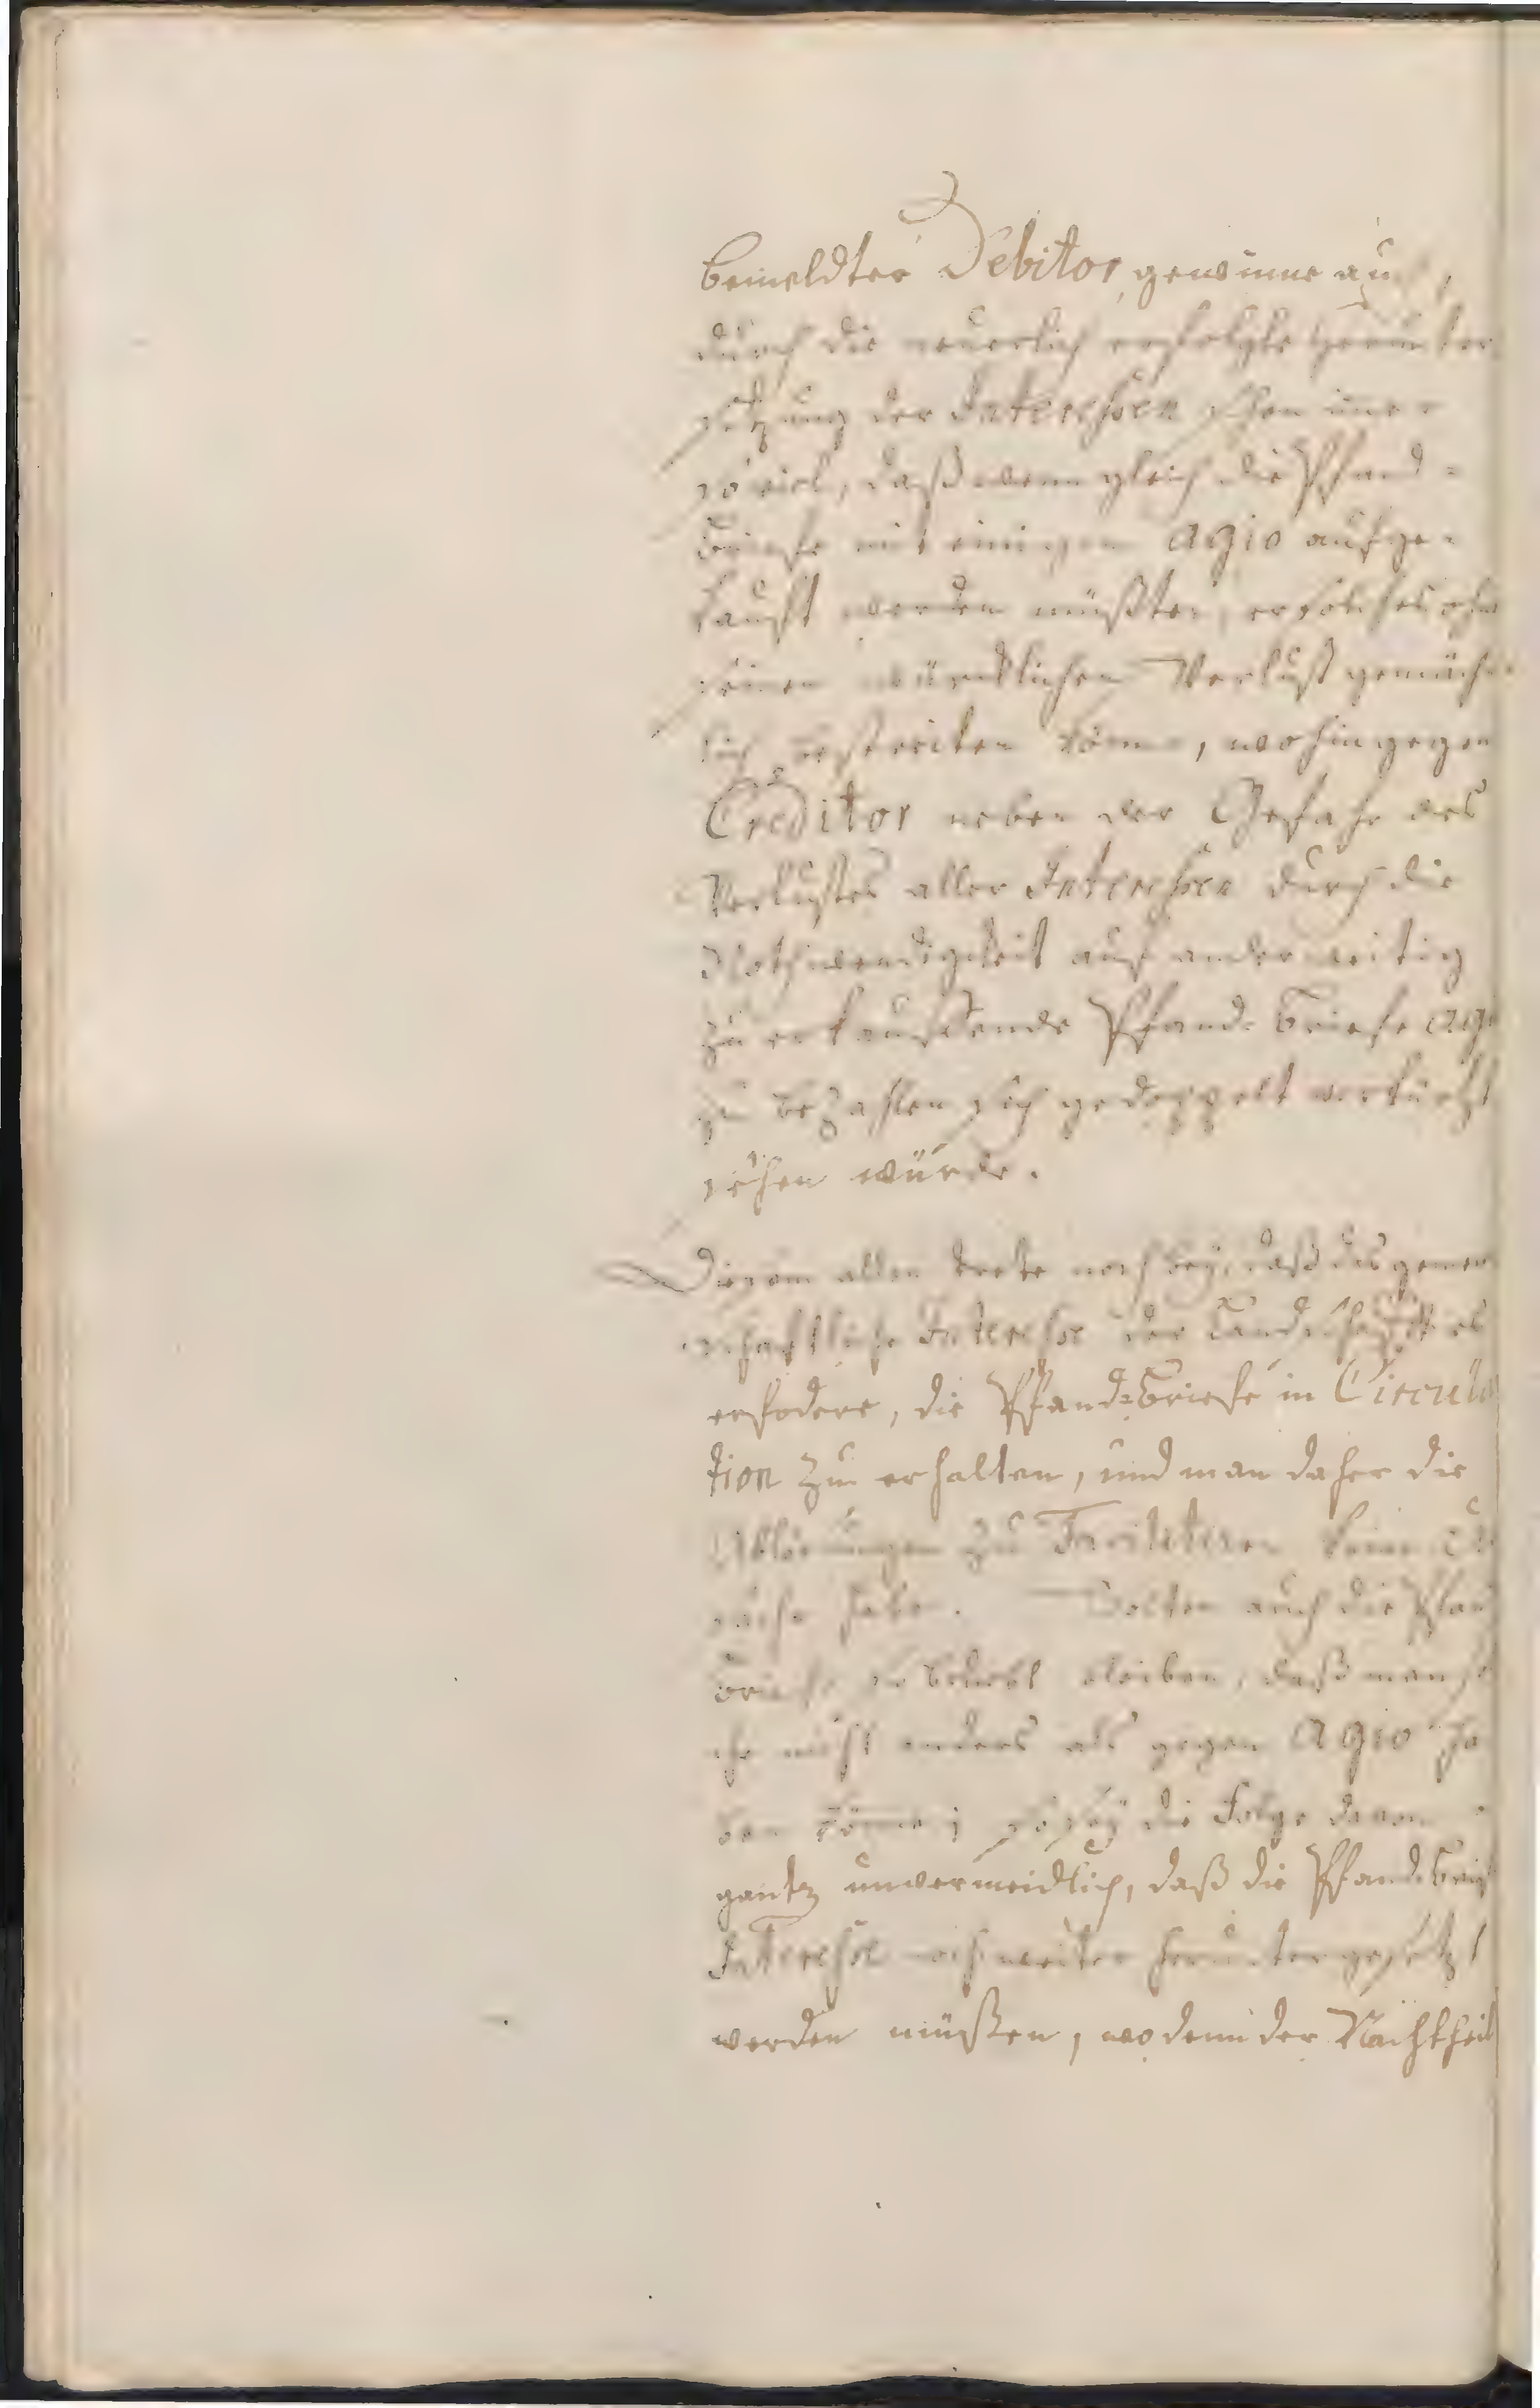 bemeldter Debitor gewinne au
durch die neuerlich erfolgte Herunter
setzung der Interessen schon immer
so viel, daß wenn gleich die Pfand-
Briefe mit einigem Agio aufge-
kauft werden müßten, er solches ohne
seinen würcklichen Verlust gemäch-
lich bestreiten könne, wohingegen
Creditor neben der Gefahr des
Verlustes aller Interessen durch die
Nothwendigkeit auf anderweitig
zu erkauffende Pfand-Briefe Agio
zu bezahlen sich gedoppelt verkürtzt
sehen würde.
Diesem allen trete noch bey, daß das gemein
schafftliche Interesse der Landschafft es
erfodere, die Pfand-Briefe in Circula
tion zu erhalten, und man daher die
Ablösungen zu facilitiren keine Ur
sache habe. Solten auch die Pfand
Briefe so beliebt bleiben, daß man sol
che nicht anders als gegen Agio ha
ben könne; so sey die Folge davon
gantz unvermeidlich, daß die Pfand-Brief
Interesse noch weiter heruntergesetzt
werden müßen, wo denn der Nachtheil